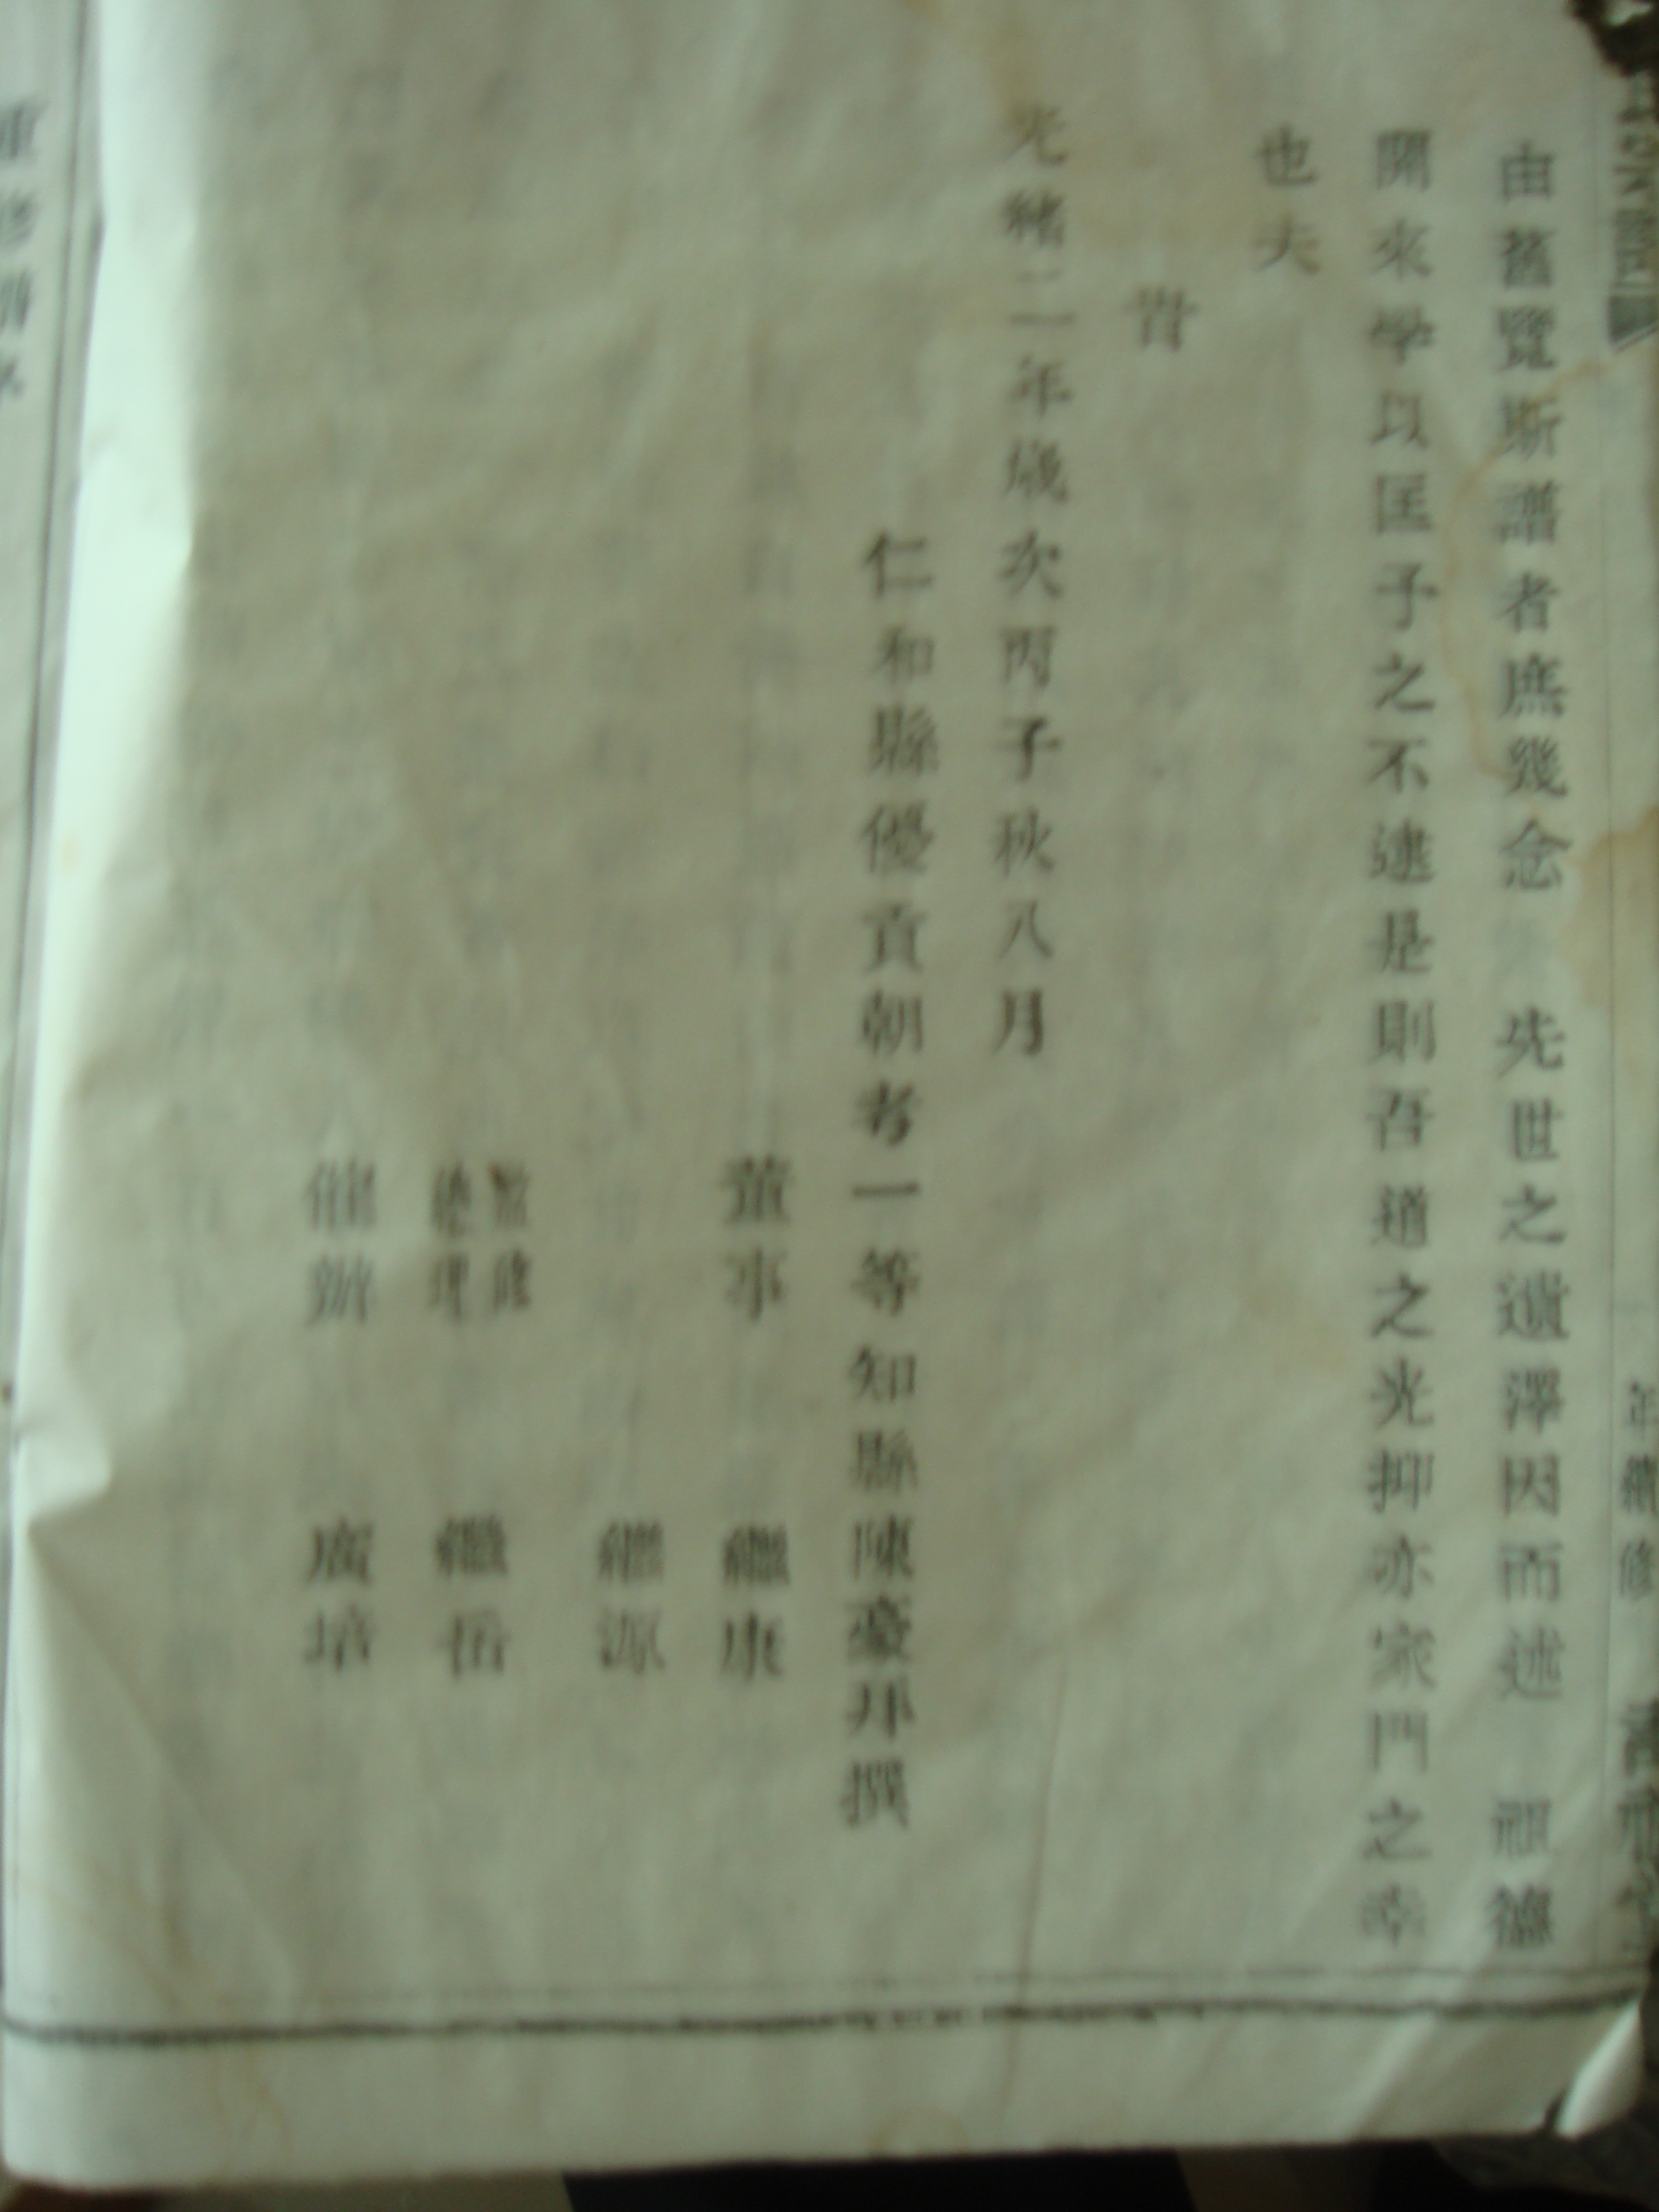 年續修
由舊覽斯譜者庶幾念 先世之遺澤因而述 祖德
開來學以匡子之不逮是則吾道之光抑亦家門之幸
也夫
旹
光緒二年歲次丙子秋八月
仁和縣優貢朝考一等知縣陳豪拜撰
董事 繼康
繼源
監修
總理 繼岳
催辦 廣培